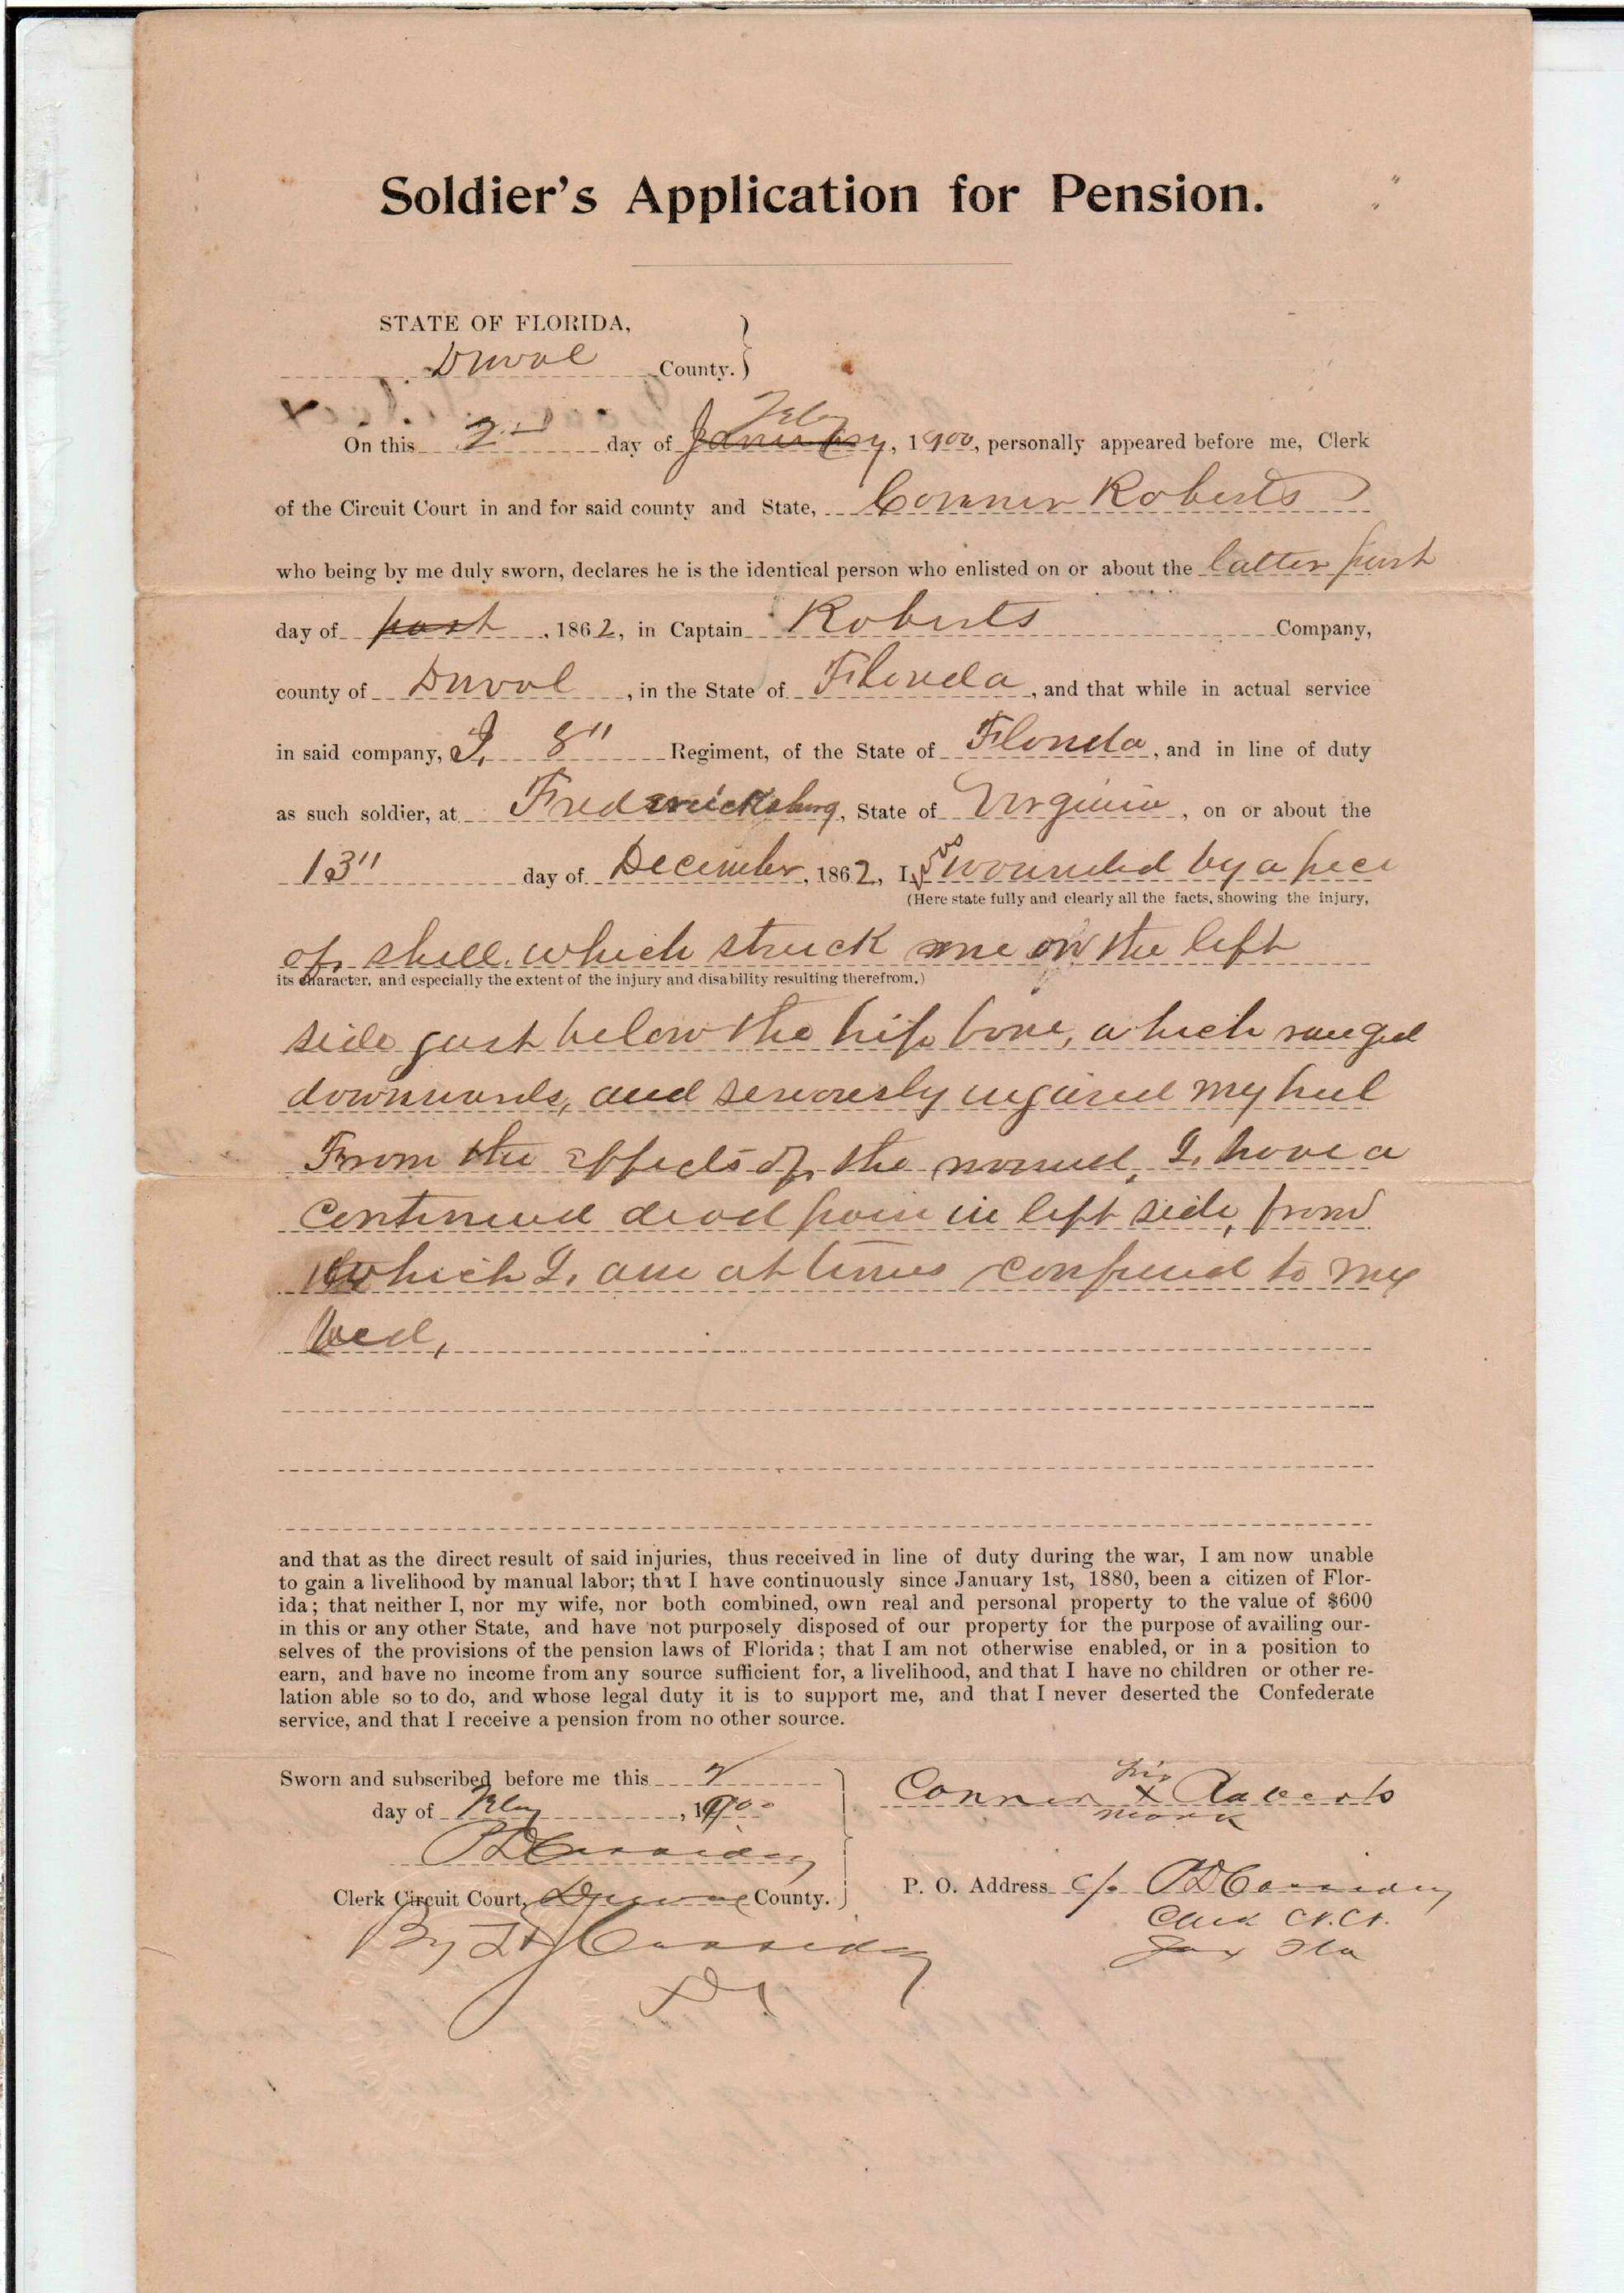 Soldier's Application for Pension.
STATE OF FLORIDA,
Duval County.
On this 2nd day of January Feby, 1900, personally appeared before me, Clerk
of the Circuit Court in and for said county and State, Conner Roberts
who being by me duly sworn, declares he is the identical person who enlisted on or about the latter part
day of part, 1862, in Captain Roberts Company,
county of Duval, in the State of Florida, and that while in actual service
in said company, I, 8" Regiment, of the State of Florida, and in line of duty
as such soldier, at Fredericksburg, State of Virginia, on or about the
13" day of December, 1862, I was wounded by a piece
(Here state fully and clearly all the facts, showing the injury,
of shell, which struck me on the left
its character, and especially the extent of the injury and disability resulting therefrom.)
side just below the hip bone, which ranged
downwards, and seriously injured my heel
From the effects of the wound, I, have a
continued dead pain in left side, from
which I, am at times confined to my
bed,
and that as the direct result of said injuries, thus received in line of duty during the war, I am now unable
to gain a livelihood by manual labor; that I have continuously since January 1st, 1880, been a citizen of Flor-
ida; that neither I, nor my wife, nor both combined, own real and personal property to the value of $600
in this or any other State, and have not purposely disposed of our property for the purpose of availing our-
selves of the provisions of the pension laws of Florida; that I am not otherwise enabled, or in a position to
earn, and have no income from any source sufficient for, a livelihood, and that I have no children or other re-
lation able so to do, and whose legal duty it is to support me, and that I never deserted the Confederate
service, and that I receive a pension from no other source.
Sworn and subscribed before me this 2
day of Feby, 1900
P D Cassidey
Clerk Circuit Court, Duval County.
By Cassidey
DC
his
Conner X Roberts
mark
P. O. Address c/o P D Cassidey
Clerk Ct. Ct.
Jax Fla